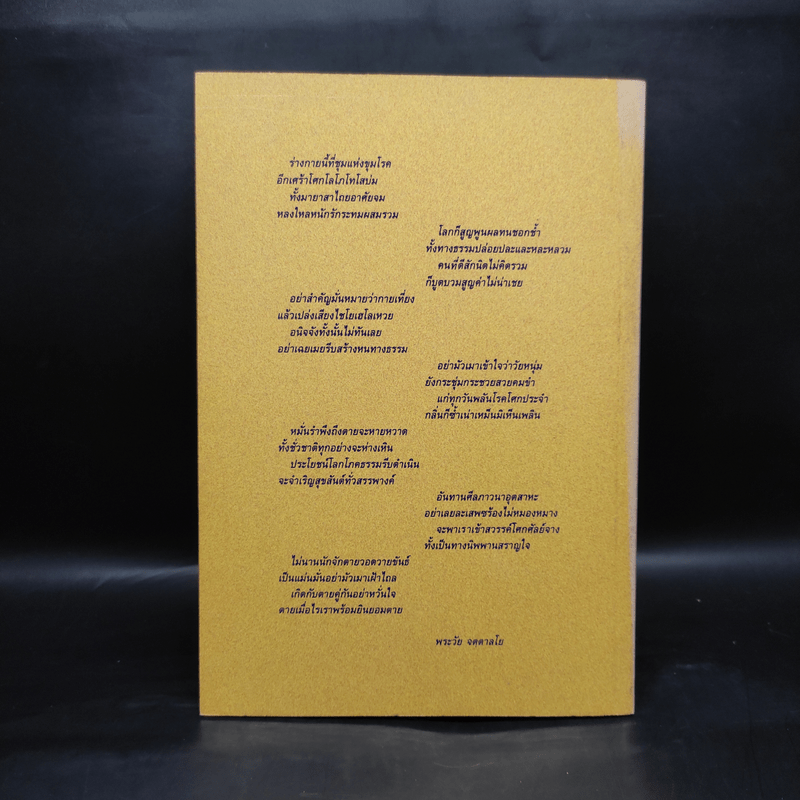 ร่างกายนี้ที่ชุมแห่งขุมโรค
อีกเศร้าโศกโลโภโทโสบ่ม
ทั้งมายาสาไถยอาศัยจม
หลงใหลหนักรักระทมผสมรวม
โลกก็สูญพูนผลทนชอกช้ำ
ทั้งทางธรรมปล่อยปละและหละหลวม
คนที่ดีสักนิดไม่คิดรวม
ก็บูดบวมสูญค่าไม่น่าเชย
อย่าสำคัญมั่นหมายว่ากายเที่ยง
แล้วเปล่งเสียงไชโยเฮโลเหวย
อนิจจังทั้งนั้นไม่ทันเลย
อย่าเฉยเมยรีบสร้างหนทางธรรม
อย่ามัวเมาเข้าใจว่าวัยหนุ่ม
ยังกระชุ่มกระชวยสวยคมขำ
แก่ทุกวันพลันโรคโศกประจำ
กลิ่นก็ซ้ำเน่าเหม็นมิเห็นเพลิน
หมั่นรำพึงถึงตายจะหายหวาด
ทั้งชั่วชาติทุกอย่างจะห่างเหิน
ประโยชน์โลกโภคธรรมรีบดำเนิน
จะจำเริญสุขสันต์ทั่วสรรพางค์
อันทานศีลภาวนาอุตสาหะ
อย่าเลยละเสพซร้องไม่หมองหมาง
จะพาเราเข้าสวรรค์โศกศัลย์จาง
ทั้งเป็นทางนิพพานสราญใจ
ไม่นานนักจักตายวอดวายขันธ์
เป็นแม่นมั่นอย่ามัวเมาเฝ้าไถล
เกิดกับตายคู่กันอย่าหวั่นใจ
ตายเมื่อไรเราพร้อมยินยอมตาย
พระวัย จตฺตาลโย